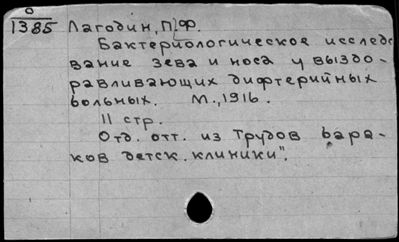 О
1385 Лагодин, П.Ф.
Бактериологическое исследо
вание зева и носа у выздо-
равливающих дифтерийных
больных. М., 1916.
11 стр.
Отд. отт. из Трудов Бара-
ков детск. клиники".